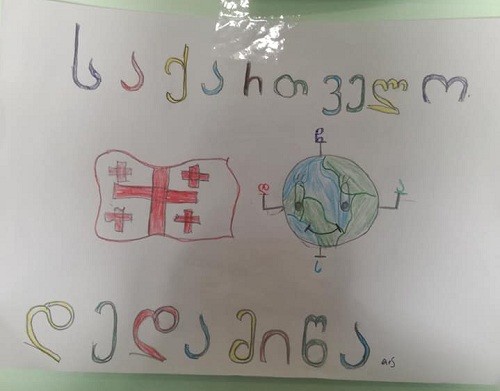 საქართველო
ჩ
დ ა
ს
დედამიწა